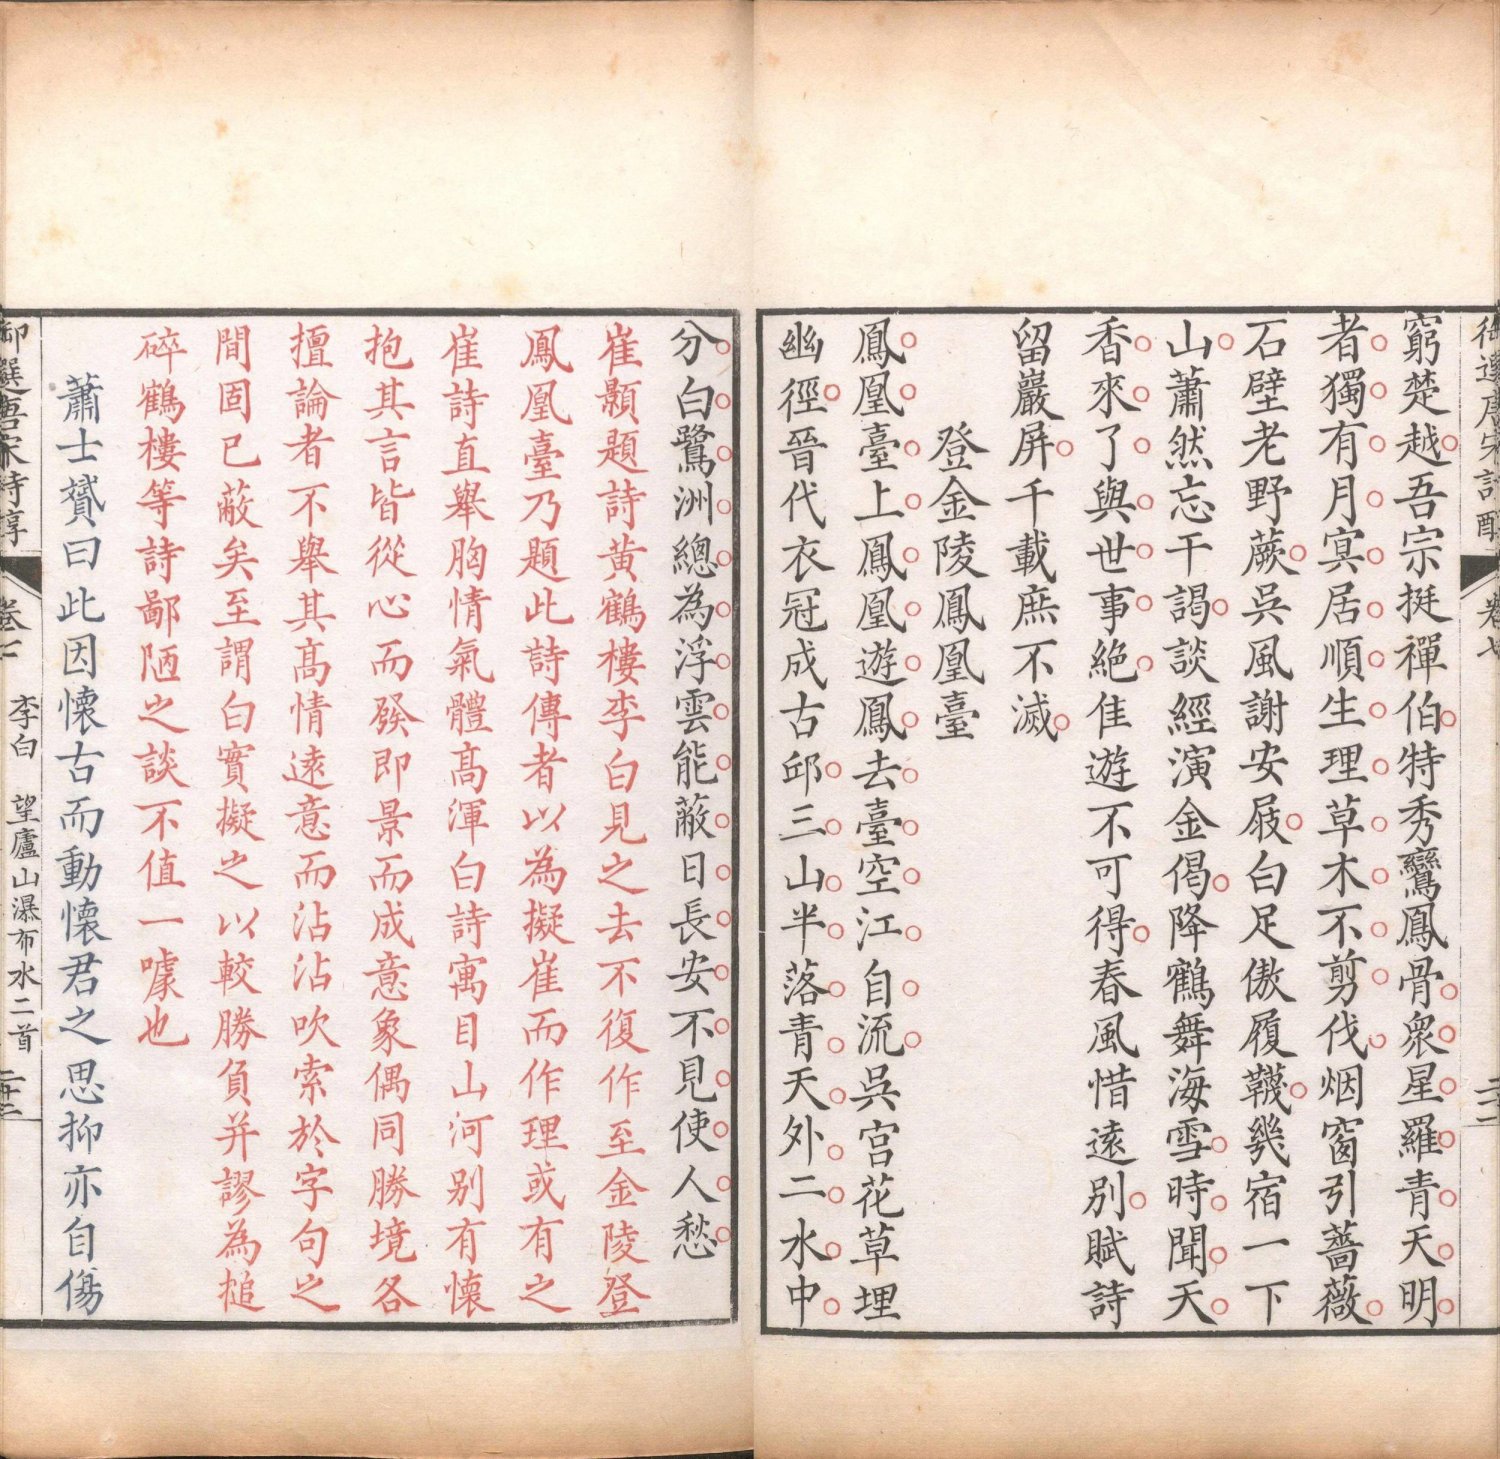 御選唐宋詩醇
卷七
二十二
窮楚越吾宗挺禪伯特秀鸞鳳骨衆星羅青天明
者獨有月寘居順生理草木不剪伐烟窗引薔薇
石壁老野蕨吳風謝安屐白足傲履韈㡬宿一下
山蕭然忘干謁談經演金偈降鶴舞海雪時聞天
香來了與世事絶隹遊不可得春風惜遠别賦詩
留巖屏千載庶不滅
登金陵鳳凰臺
鳳凰臺上鳳凰遊鳳去臺空江自流吳宫花草埋
幽徑晉代衣冠成古邱三山半落青天外二水中
分白鷺洲總為浮雲能蔽日長安不見使人愁
崔顥題詩黄鶴樓李白見之去不復作至金陵登
鳳凰臺乃題此詩傳者以為擬崔而作理或有之
崔詩直舉胸情氣體高渾白詩寓目山河别有懷
抱其言皆從心而發即景而成意象偶同勝境各
擅論者不舉其高情遠意而沾沾吹索於字句之
間固已蔽矣至謂白實擬之以較勝負并謬為搥
碎鶴樓等詩鄙陋之談不值一噱也
蕭士贇曰此因懷古而動懷君之思抑亦自傷
御選唐宋詩醇
卷七
李白 望廬山瀑布水二首
二十三